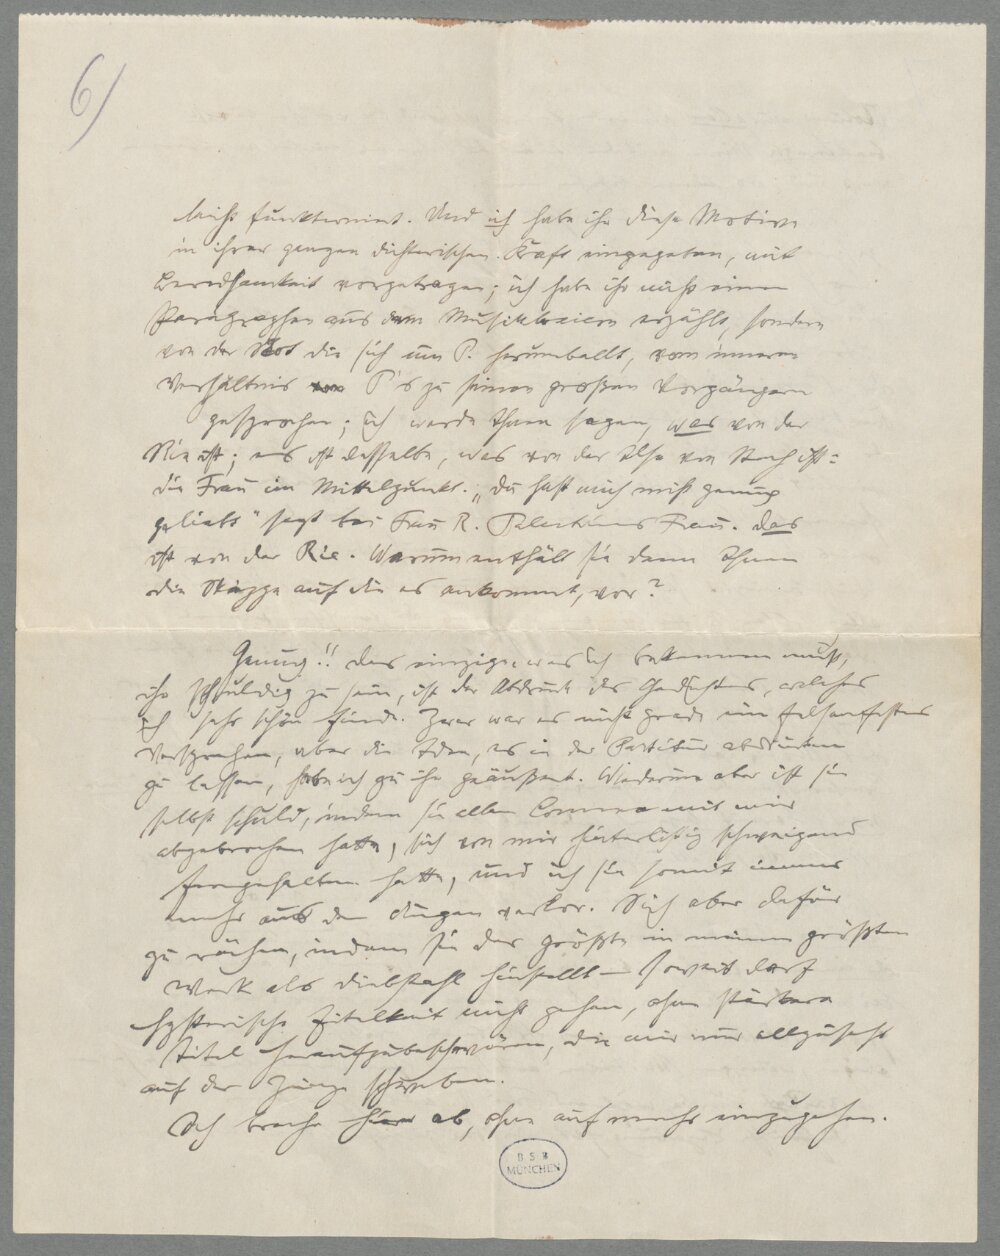 6)
nicht funktioniert. Und ich habe ihr diese Motive
in ihrer ganzen dichterischen Kraft eingegeben, mit
Beredsamkeit vorgetragen; ich habe ihr nicht einen
Paragraphen aus dem Musiklexicon erzählt, sondern
von der Not die sich um P. herumballt, vom inneren
Verhältnis P's zu seinen großen Vorgängern
gesprochen; ich werde Ihnen sagen, was von der
Rie ist; es ist dasselbe, was von der Ilse von Stach ist:
die Frau im Mittelpunkt. „Du hast mich nicht genug
geliebt" sagt bei Frau R. Palestrinas Frau. Das
ist von der Rie. Warum enthält sie denn Ihnen
die Skizze auf die es ankommt, vor?
Genug!! Das einzige, was ich bekennen muß,
ihr schuldig zu sein, ist der Abdruck des Gedichtes, welches
ich sehr schön finde. Zwar war es nicht grade ein felsenfestes
Versprechen, aber die Idee, es in der Partitur abdrucken
zu lassen, habe ich zu ihr geäußert. Wiederum aber ist sie
selbst schuld, indem sie allen Connex mit mir
abgebrochen hatte, sich von mir hinterlistig schweigend
ferngehalten hatte, und ich sie somit immer
mehr aus den Augen verlor. Sich aber dafür
zu rächen, indem sie das größte in meinem größten
Werk als Diebstahl hinstellt – soweit darf
hysterische Eitelkeit nicht gehen, ohne stärkere
Titel heraufzubeschwören, die mir nur allzusehr
auf der Zunge schweben.
Ich breche hier ab, ohne auf mehr einzugehen.
B S B
MÜNCHEN